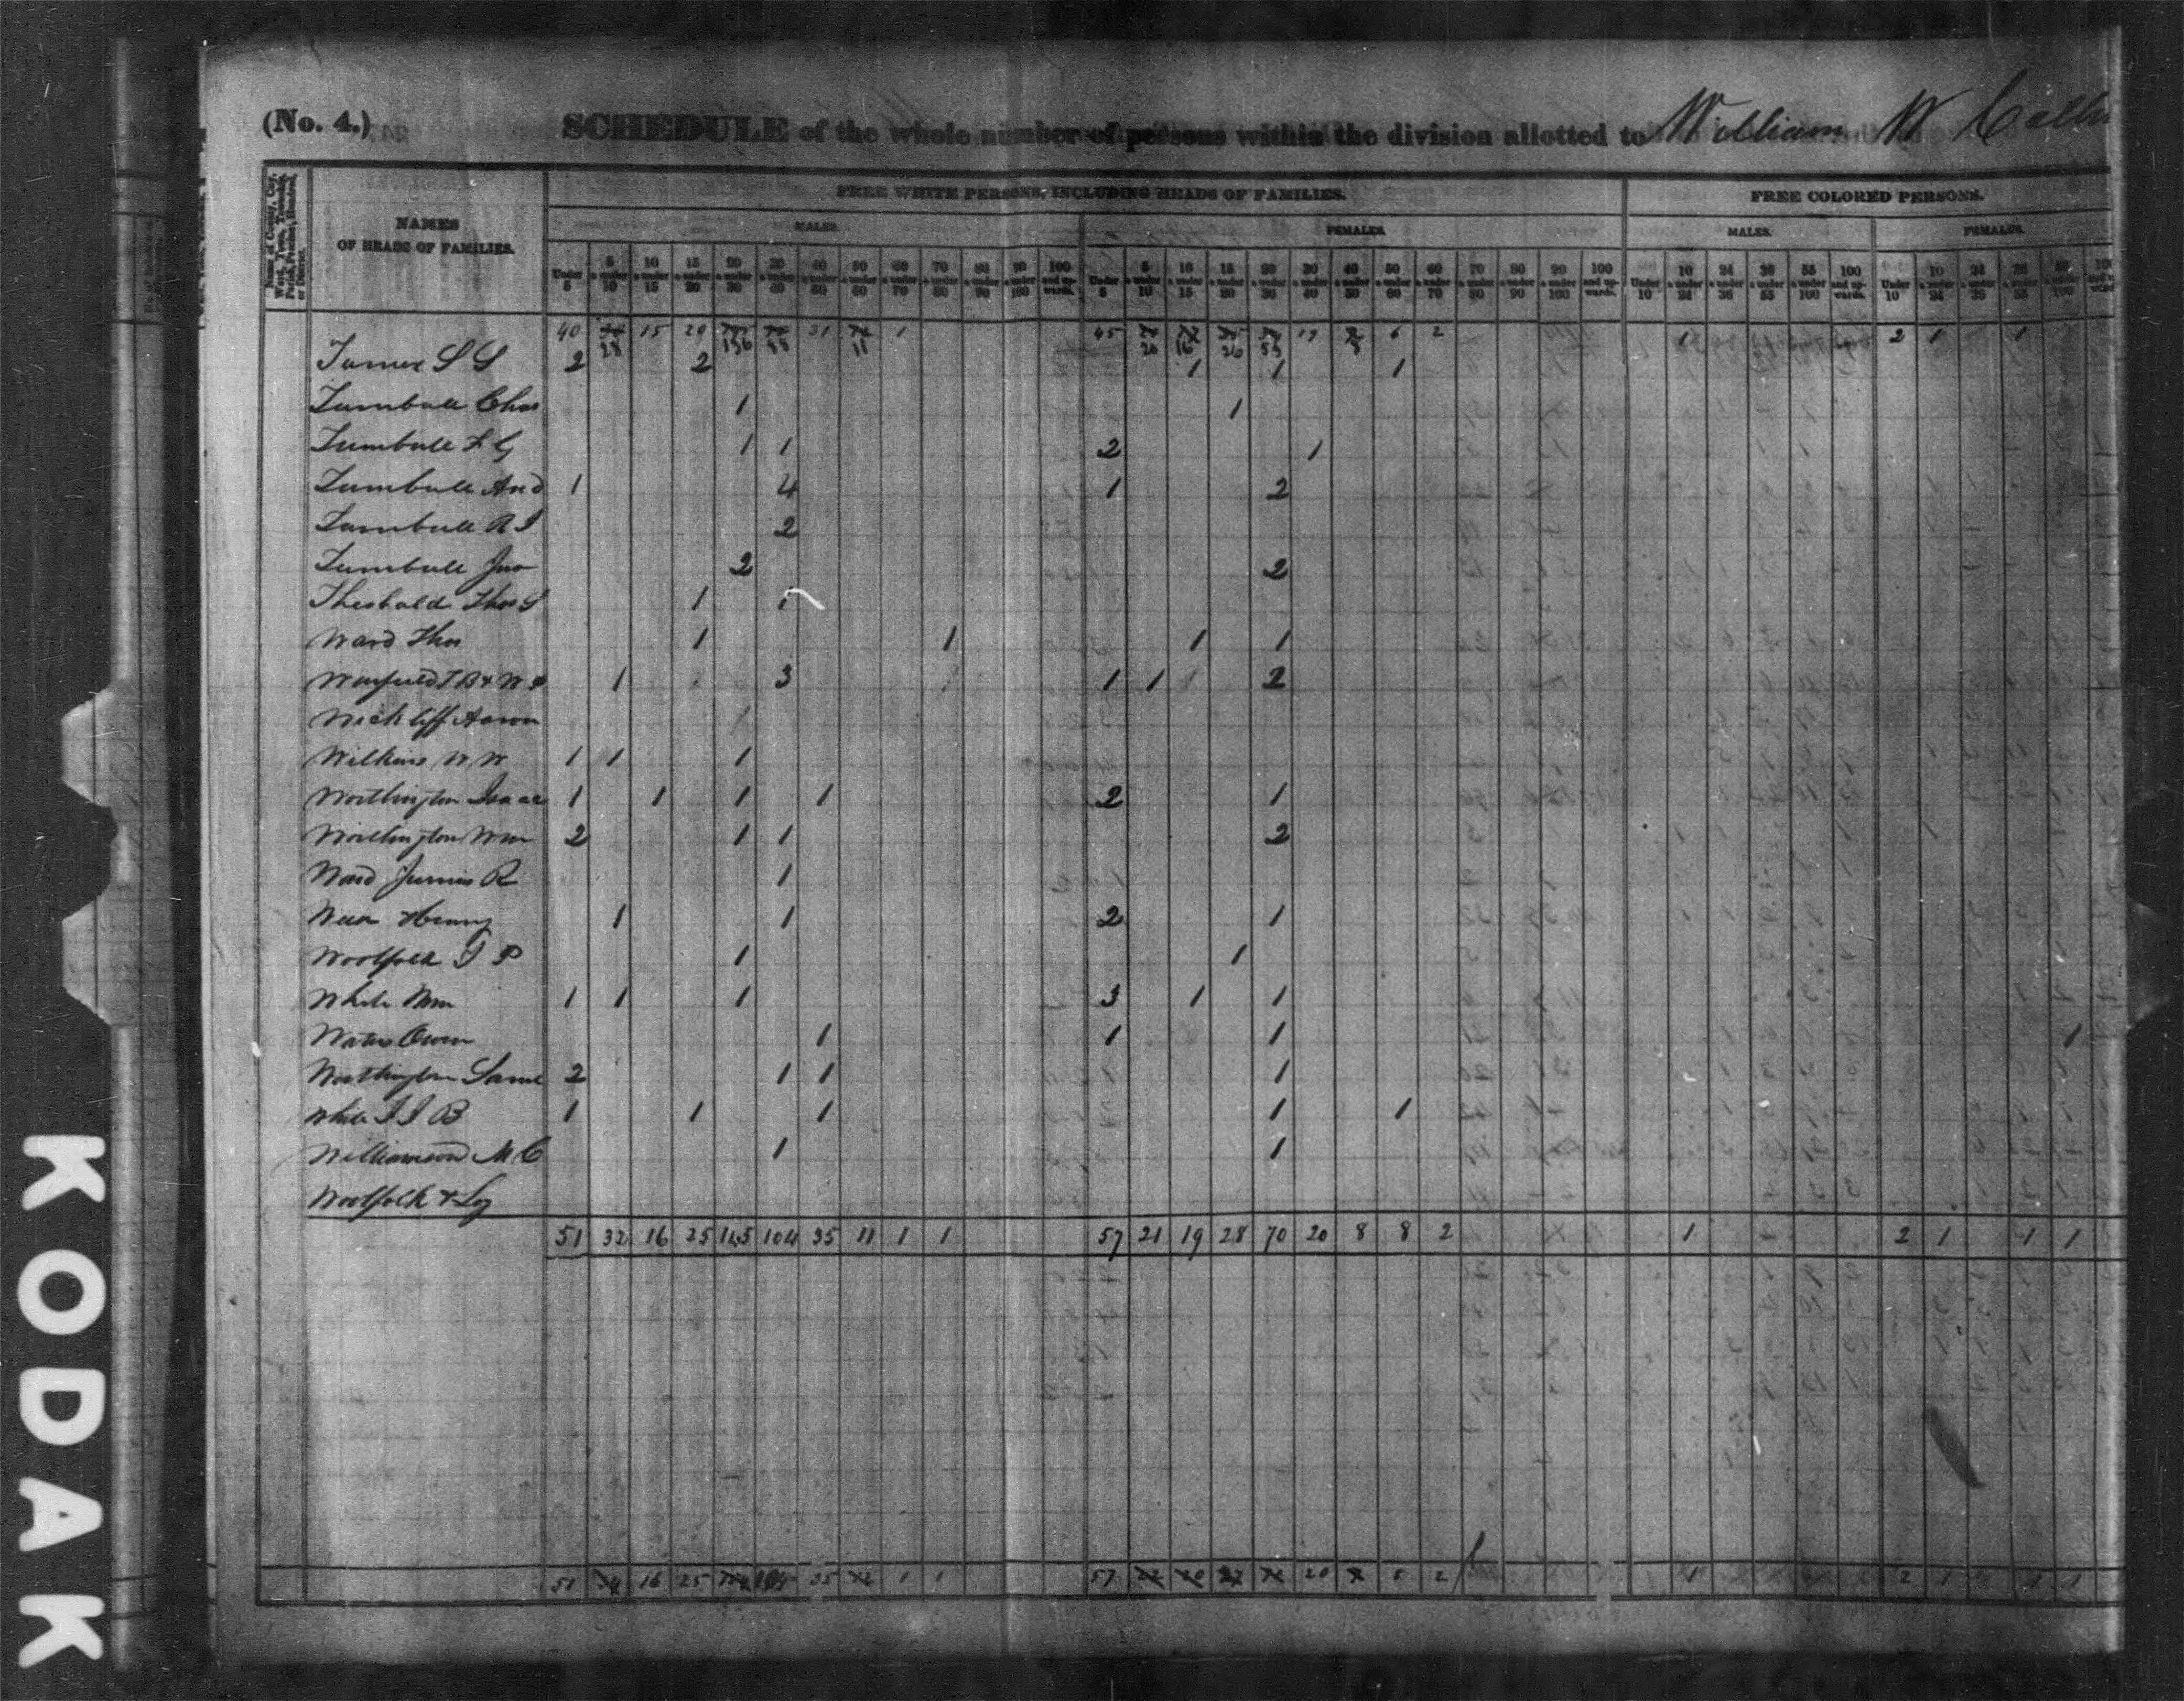 (No. 4.) SCHEDULE of the whole number of persons within the division allotted to William W
Name of County, City, Ward, Town, Township, Parish, Precinct, Hundred, or District.
NAMES OF HEADS OF FAMILIES.
FREE WHITE PERSONS, INCLUDING HEADS OF FAMILIES.
FREE COLORED PERSONS.
MALES. FEMALES. MALES. FEMALES.
Under 5 5 & under 10 10 & under 15 15 & under 20 20 & under 30 30 & under 40 40 & under 50 50 & under 60 60 & under 70 70 & under 80 80 & under 90 90 & under 100 100 and upwards. Under 5 5 & under 10 10 & under 15 15 & under 20 20 & under 30 30 & under 40 40 & under 50 50 & under 60 60 & under 70 70 & under 80 80 & under 90 90 & under 100 100 and upwards. Under 10 10 & under 24 24 & under 36 36 & under 55 55 & under 100 100 and upwards. Under 10 10 & under 24 24 & under 36 36 & under 55
40 28 15 20 136 31 11 1 45 20 16 26 19 8 6 2 1 2 1 1
Turner S S 2 2 1 1 1
Turnbull Chas 1 1
Turnbull F G 1 1 2 1
Turnbull And 1 4 1 2
Turnbull R I 2
Turnbull Jno 2 2
Theobald Thos S 1 1
Ward Thos 1 1 1 1
1 3 1 1 2
Wickliff Aaron 1
Wilkins W W 1 1 1
Worthington Isaac 1 1 1 1 2 1
Worthington Wm 2 1 1 2
Ward Junius R 1
Henry 1 1 2 1
Woolfolk I P 1 1
White Wm 1 1 1 3 1 1
Waters Owen 1 1 1 1
Worthington Saml 2 1 1 1
White I I B 1 1 1 1 1
Williamson M C 1 1
Woolfolk &
51 32 16 25 145 104 35 11 1 1 57 21 19 28 70 20 8 8 2 1 2 1 1 1
51 16 25 35 1 1 57 20 2 1 2 1 1 1
KODAK